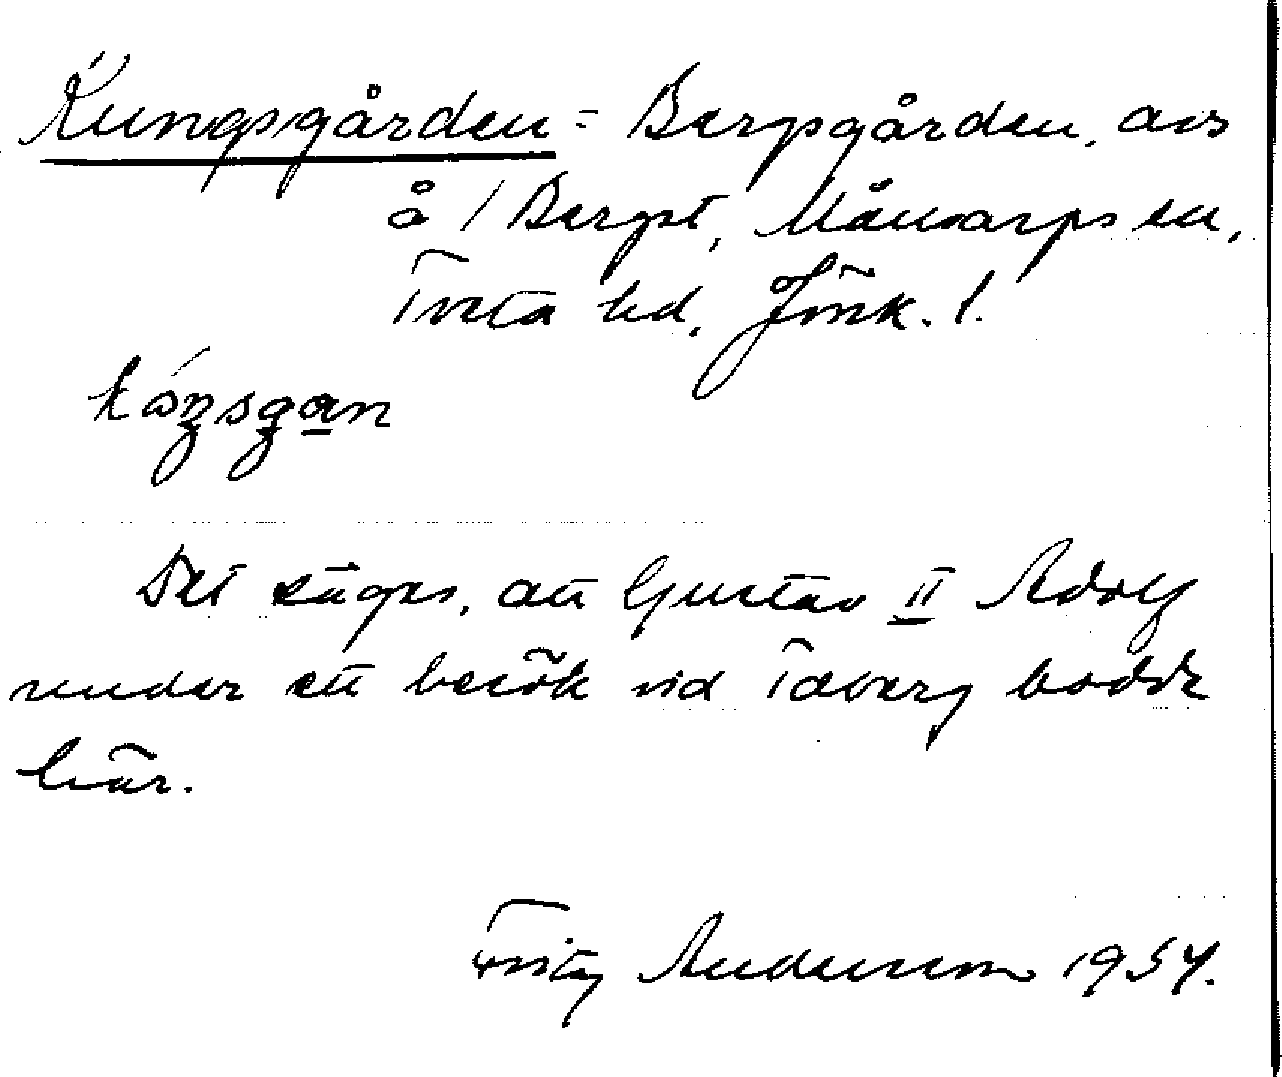 Kungsgården = Bergsgården, avs
å 1 Berget, Månsarps sn,
Tveta hd, Jönk. l.
kóŋsgan
Det säges, att Gustav II Adolf
under ett besök vid Taberg bodde
här.
Fritz Andersson 1934.